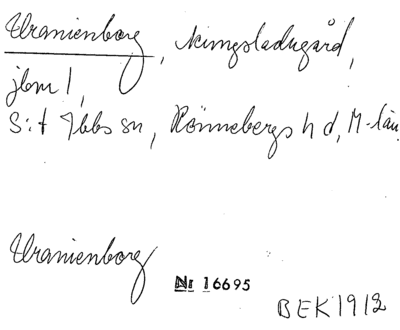 Uranienborg, Kungsladugård,
jbm 1,
S:t Ibbs sn, Rönnebergs hd, M-län
Uranienborg
Nr 16695
BEK 1912